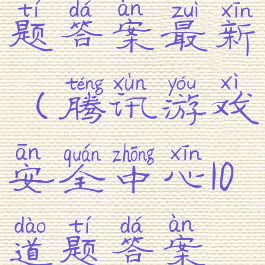 tí dá àn zuì xīn
题答案最新
téng xùn yóu xì
（腾讯游戏
ān quán zhōng xīn
安全中心10
dào tí dá àn
道题答案